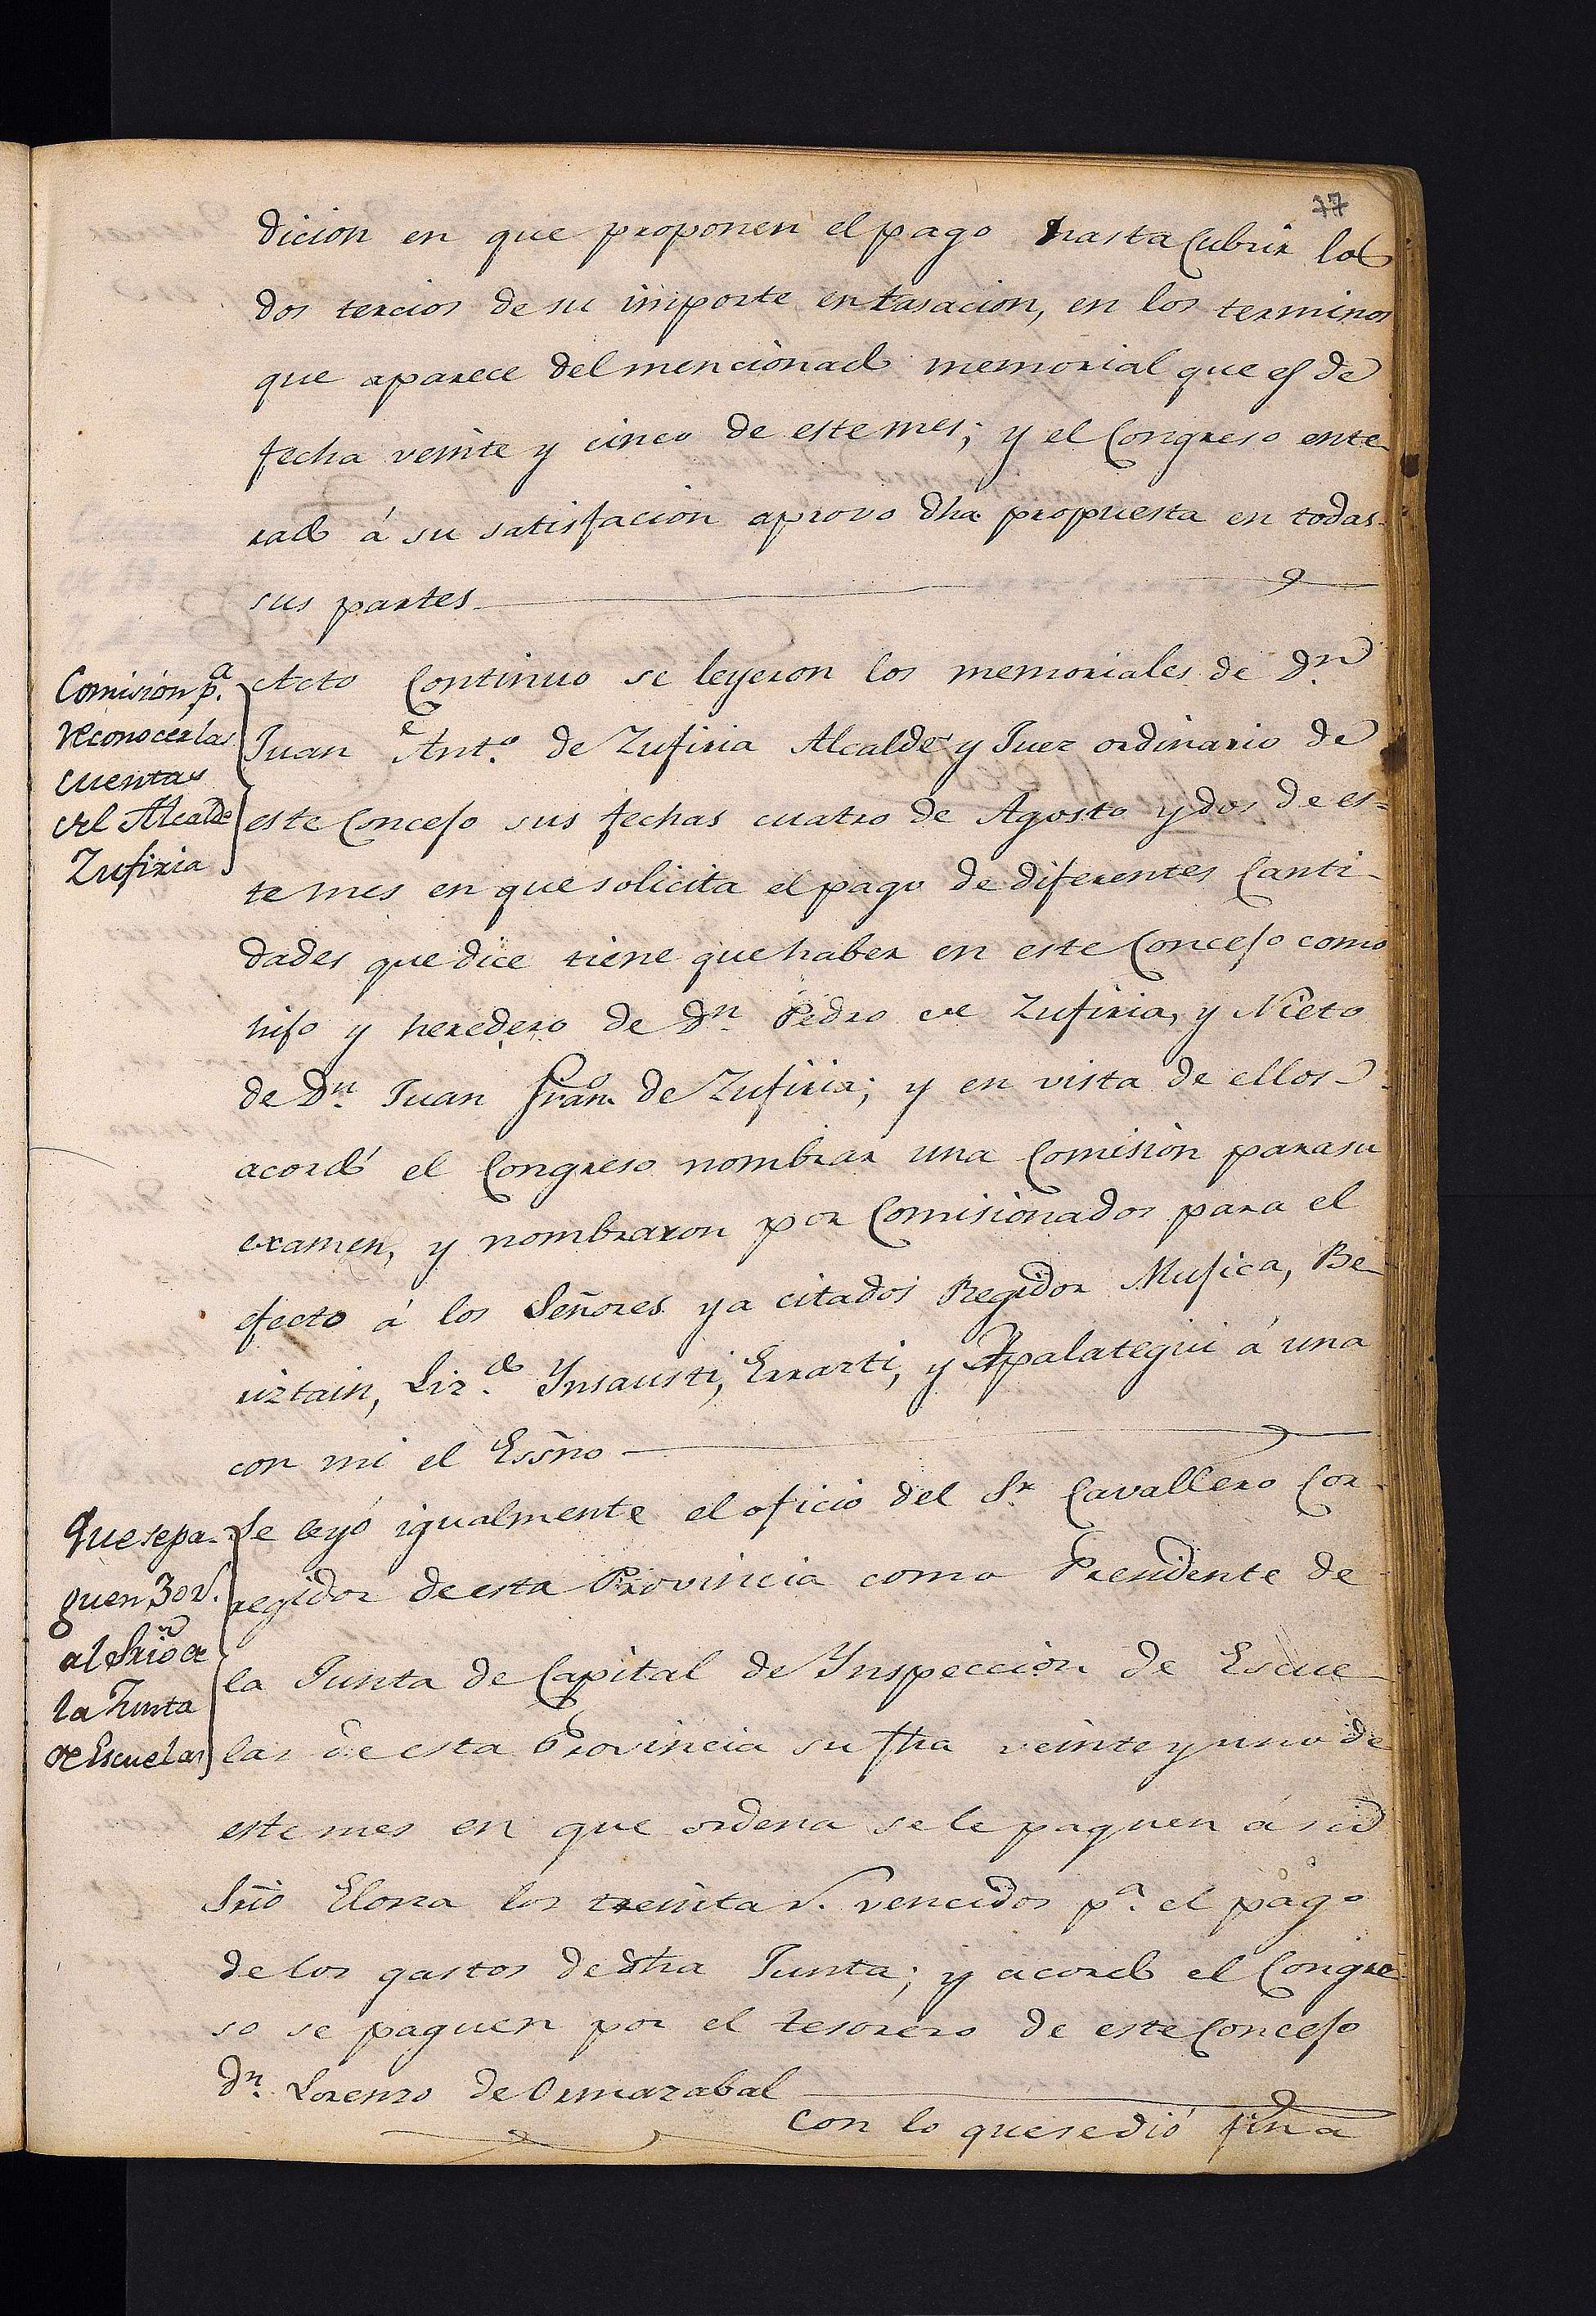 77
dicion en que proponen el pago hasta Cubrir los
dos tercios de su importe en tasacion, en los terminos
que aparece del mencionado memorial que es de
fecha veinte y cinco de este mes; y el Congreso ente-
rado á su satisfacion aprovo dha propuesta en todas
sus partes
Comision p.ª
reconocer las
cuentas
del Alcalde
Zufiria
Acto Continuo se leyeron los memoriales de Dn.
Juan Ant.º de Zufiria Alcalde y Juez ordinario de
este Concejo sus fechas cuatro de Agosto y dos de es-
te mes en que solicita el pago de diferentes Canti-
dades que dice tiene que haber en este Concejo como
hijo y heredero de Dn. Pedro de Zufiria, y Nieto
de Dn. Juan Franco de Zufiria; y en vista de ellos
acordó el Congreso nombrar una Comision para su
examen, y nombraron por Comisionados para el
efecto á los Señores ya citados Regidor Mujica, Be-
riztain, Liz.do Ynsausti, Errazti, y Apalategui á una
con mi el Essño
Que se pa-
guen 30 r.
al Sriō de
la Junta
de Escuelas
Se leyó igualmente el oficio del Sr. Cavallero Cor-
regidor de esta Provincia como Presidente de
la Junta de Capital de Ynspeccion de Escue-
las de esta Provincia su fha veinte y uno de
este mes en que ordena se le paguen á su
Sriō Elorza los treinta r. vencidos p.ª el pago
de los gastos de dha Junta; y acordo el Congre-
so se paguen por el tesorero de este Concejo
Dn. Lorenzo de Ormazabal
Con lo que se dió fin á